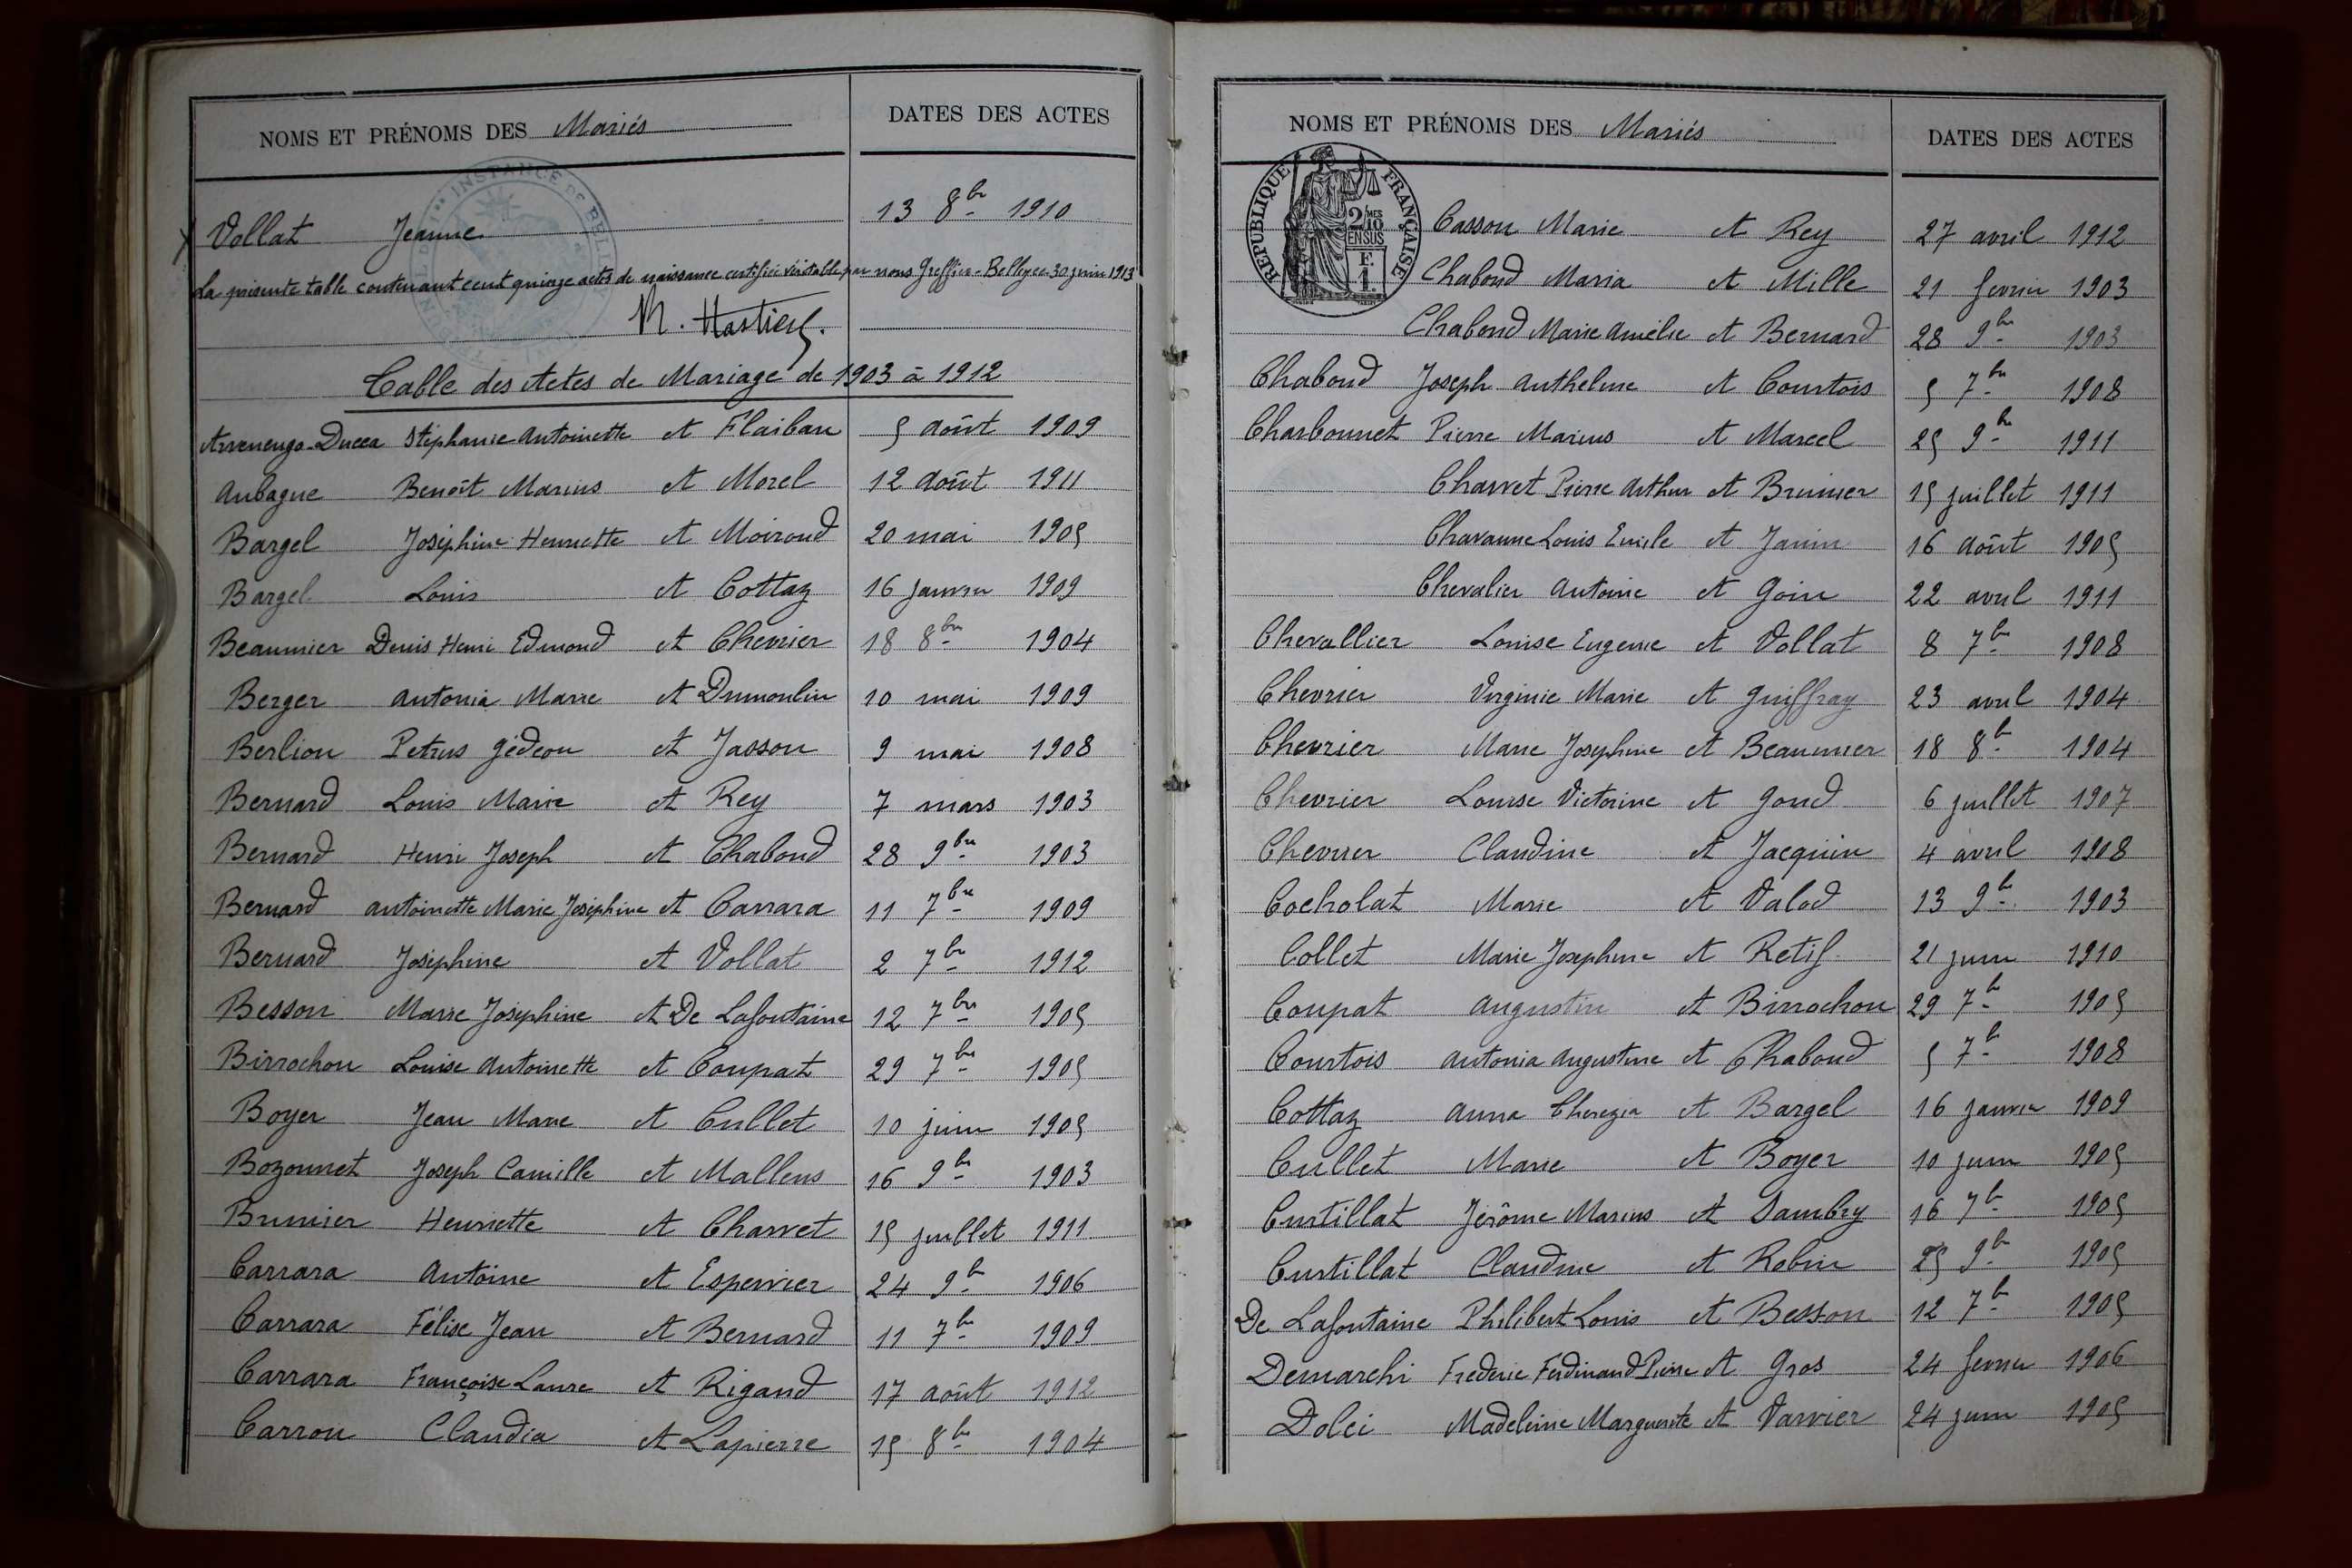 NOMS ET PRÉNOMS DES Mariés DATES DES ACTES
Vollat Jeanne 13 8bre 1910
La présente table contenant cent quinze actes de naissance certifiée véritable par nous Greffier - Belley ce 30 juin 1913
Table des Actes de Mariage de 1903 à 1912
Arvenengo-Ducca Stéphanie Antoinette et Flaiban 5 août 1909
Aubague Benoît Marius et Morel 12 août 1911
Bargel Joséphine Henriette et Moiroud 20 mai 1905
Bargel Louis et Cottaz 16 janvier 1909
Beaumier Denis Henri Edmond et Chevrier 18 8bre 1904
Berger Antonia Marie et Dumoulin 10 mai 1909
Berlion Petrus Gédéon et Jasson 9 mai 1908
Bernard Louis Marie et Rey 7 mars 1903
Bernard Henri Joseph et Chaboud 28 9bre 1903
Bernard Antoinette Marie Joséphine et Carrara 11 7bre 1909
Bernard Joséphine et Vollat 2 7bre 1912
Besson Marie Joséphine et De Lafontaine 12 7bre 1905
Birrochon Louise Antoinette et Coupat 29 7bre 1905
Boyer Jean Marie et Cullet 10 juin 1905
Bozonnet Joseph Camille et Mallens 16 9bre 1903
Brunier Henriette et Charvet 15 juillet 1911
Carrara Antoine et Espervier 24 9bre 1906
Carrara Félise Jean et Bernard 11 7bre 1909
Carrara Françoise Laure et Rigaud 17 août 1912
Carron Claudia et Lapierre 15 8bre 1904
NOMS ET PRÉNOMS DES Mariés DATES DES ACTES
REPUBLIQUE FRANÇAISE
2/10 MES
EN SUS
F.
1.
Casson Marie et Rey 27 avril 1912
Chaboud Maria et Mille 21 fevrier 1903
Chaboud Marie Amélie et Bernard 28 9bre 1903
Chaboud Joseph Anthelme et Courtois 5 7bre 1908
Charbonnet Pierre Marius et Marcel 25 9bre 1911
Charvet Pierre Arthur et Brunier 15 juillet 1911
Chavanne Louis Emile et Janin 16 août 1905
Chevalier Antoine et Goin 22 avril 1911
Chevallier Louise Eugenie et Vollat 8 7bre 1908
Chevrier Virginie Marie et Guiffray 23 avril 1904
Chevrier Marie Josephine et Beaumier 18 8bre 1904
Chevrier Louise Victorine et Goud 6 juillet 1907
Chevrier Claudine et Jacquin 4 avril 1908
Cocholat Marie et Valod 13 9bre 1903
Collet Marie Josephine et Retif 21 juin 1910
Coupat Augustin et Birrochon 29 7bre 1905
Courtois Antonia Augustine et Chaboud 5 7bre 1908
Cottaz Anna Therezia et Bargel 16 janvier 1909
Cullet Marie et Boyer 10 juin 1905
Curtillat Jérôme Marius et Dambzy 16 7bre 1905
Curtillat Claudine et Robin 25 9bre 1905
De Lafontaine Philibert Louis et Besson 12 7bre 1905
Demarchi Frederic Ferdinand Pierre et Gros 24 fevrier 1906
Dolci Madeleine Marguerite et Varvier 24 juin 1905